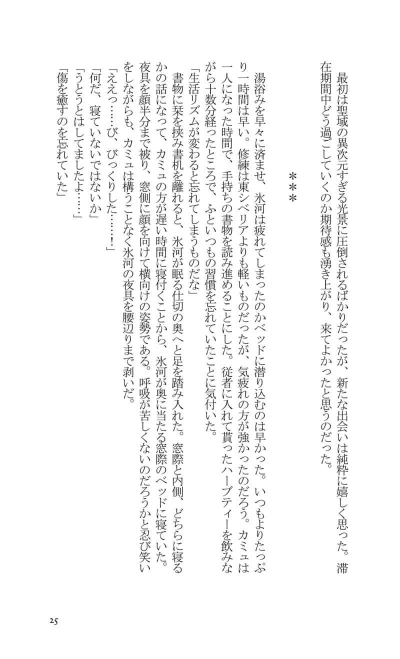 最初は聖域の異次元すぎる光景に圧倒されるばかりだったが、新たな出会いは純粋に嬉しく思った。滞
在期間中どう過ごしていくのか期待感も湧き上がり、来てよかったと思うのだった。
＊＊＊
湯浴みを早々に済ませ、氷河は疲れてしまったのかベッドに潜り込むのは早かった。いつもよりたっぷ
り一時間は早い。修練は東シベリアよりも軽いものだったが、気疲れの方が強かったのだろう。カミュは
一人になった時間で、手持ちの書物を読み進めることにした。従者に入れて貰ったハーブティーを飲みな
がら十数分経ったところで、ふといつもの習慣を忘れていたことに気付いた。
「生活リズムが変わると忘れてしまうものだな」
書物に栞を挟み書机を離れると、氷河が眠る仕切の奥へと足を踏み入れた。窓際と内側、どちらに寝る
かの話になって、カミュの方が遅い時間に寝付くことから、氷河が奥に当たる窓際のベッドに寝ていた。
夜具を顔半分まで被り、窓側に顔を向けて横向けの姿勢である。呼吸が苦しくないのだろうかと忍び笑い
をしながらも、カミュは構うことなく氷河の夜具を腰辺りまで剥いだ。
「ええっ……び、びっくりした……！」
「何だ、寝ていないではないか」
「うとうとはしてましたよ……」
「傷を癒すのを忘れていた」
25